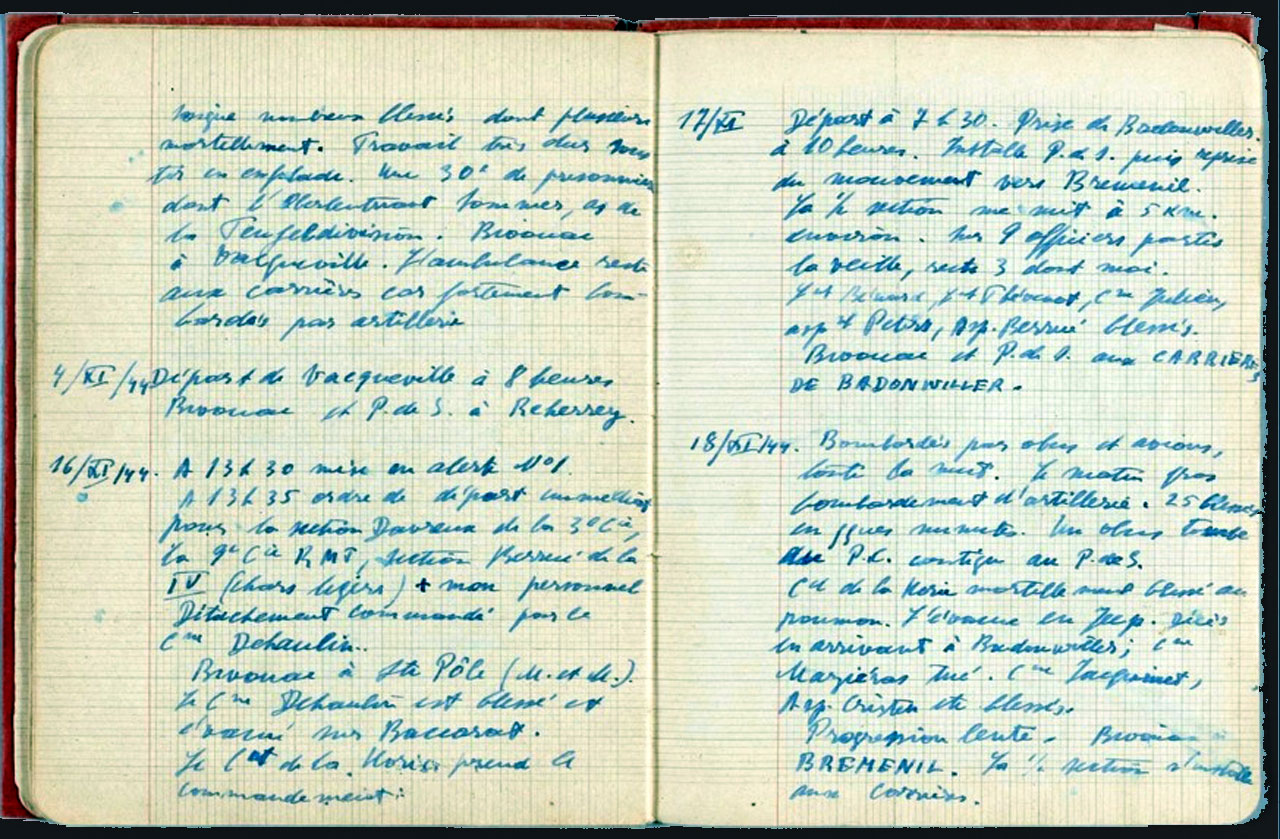 Soigne nombreux blessés dont plusieurs
mortellement. Travail très dur sous
tir en enfilade. Une 30e de prisonniers
dont l'Oberleutnant Sommer, as de
la Teufeldivision. Bivouac
à Vacqueville. L'ambulance reste
aux carrières car fortement bom-
bardés par artillerie
4/XI/44 Départ de Vacqueville à 8 heures
Bivouac et P.d.S. à Reherrey.
16/XI/44. A 13h30 mise en alerte N°1.
A 13h35 ordre de départ immédiat
pour la section Davreux de la 3e Cie,
la 9e Cie RMT, section Berrué de la
IV (chars légers) + mon personnel
Détachement commandé par le
Cne Dehaulin..
Bivouac à Ste Pôle (M. et M.).
Le Cne Dehaulin est blessé et
évacué sur Baccarat.
Le Ct de la Horie prend le
commandement.
17/XI Départ à 7h30. Prise de Badonwiller.
à 10 heures. Installe P.d.S. puis reprise
du mouvement vers Bremenil.
La ½ section me suit à 5 km.
environ. Sur 9 officiers partis
la veille, reste 3 dont moi.
Lt Bénard, Lt Thévenet, Cne Julien,
aspt Peters, Asp. Berrué blessés.
Bivouac et P.d.S. aux CARRIERES
DE BADONWILLER.
18/XI/44. Bombardés par obus et avions,
toute la nuit. Le matin gros
bombardement d'artillerie. 25 blessés
en qques minutes. Un obus tombe
au P.C. contigu au P.d.S.
Ct de la Horie mortellement blessé au
poumon. J'évacue en Jeep. Décès
en arrivant à Badonwiller; Cne
Mazieras tué. Cne Jacquinet,
Asp. Cristen etc blessés.
Progression lente. Bivouac
BREMENIL. La ½ section s'installe
aux carrières.